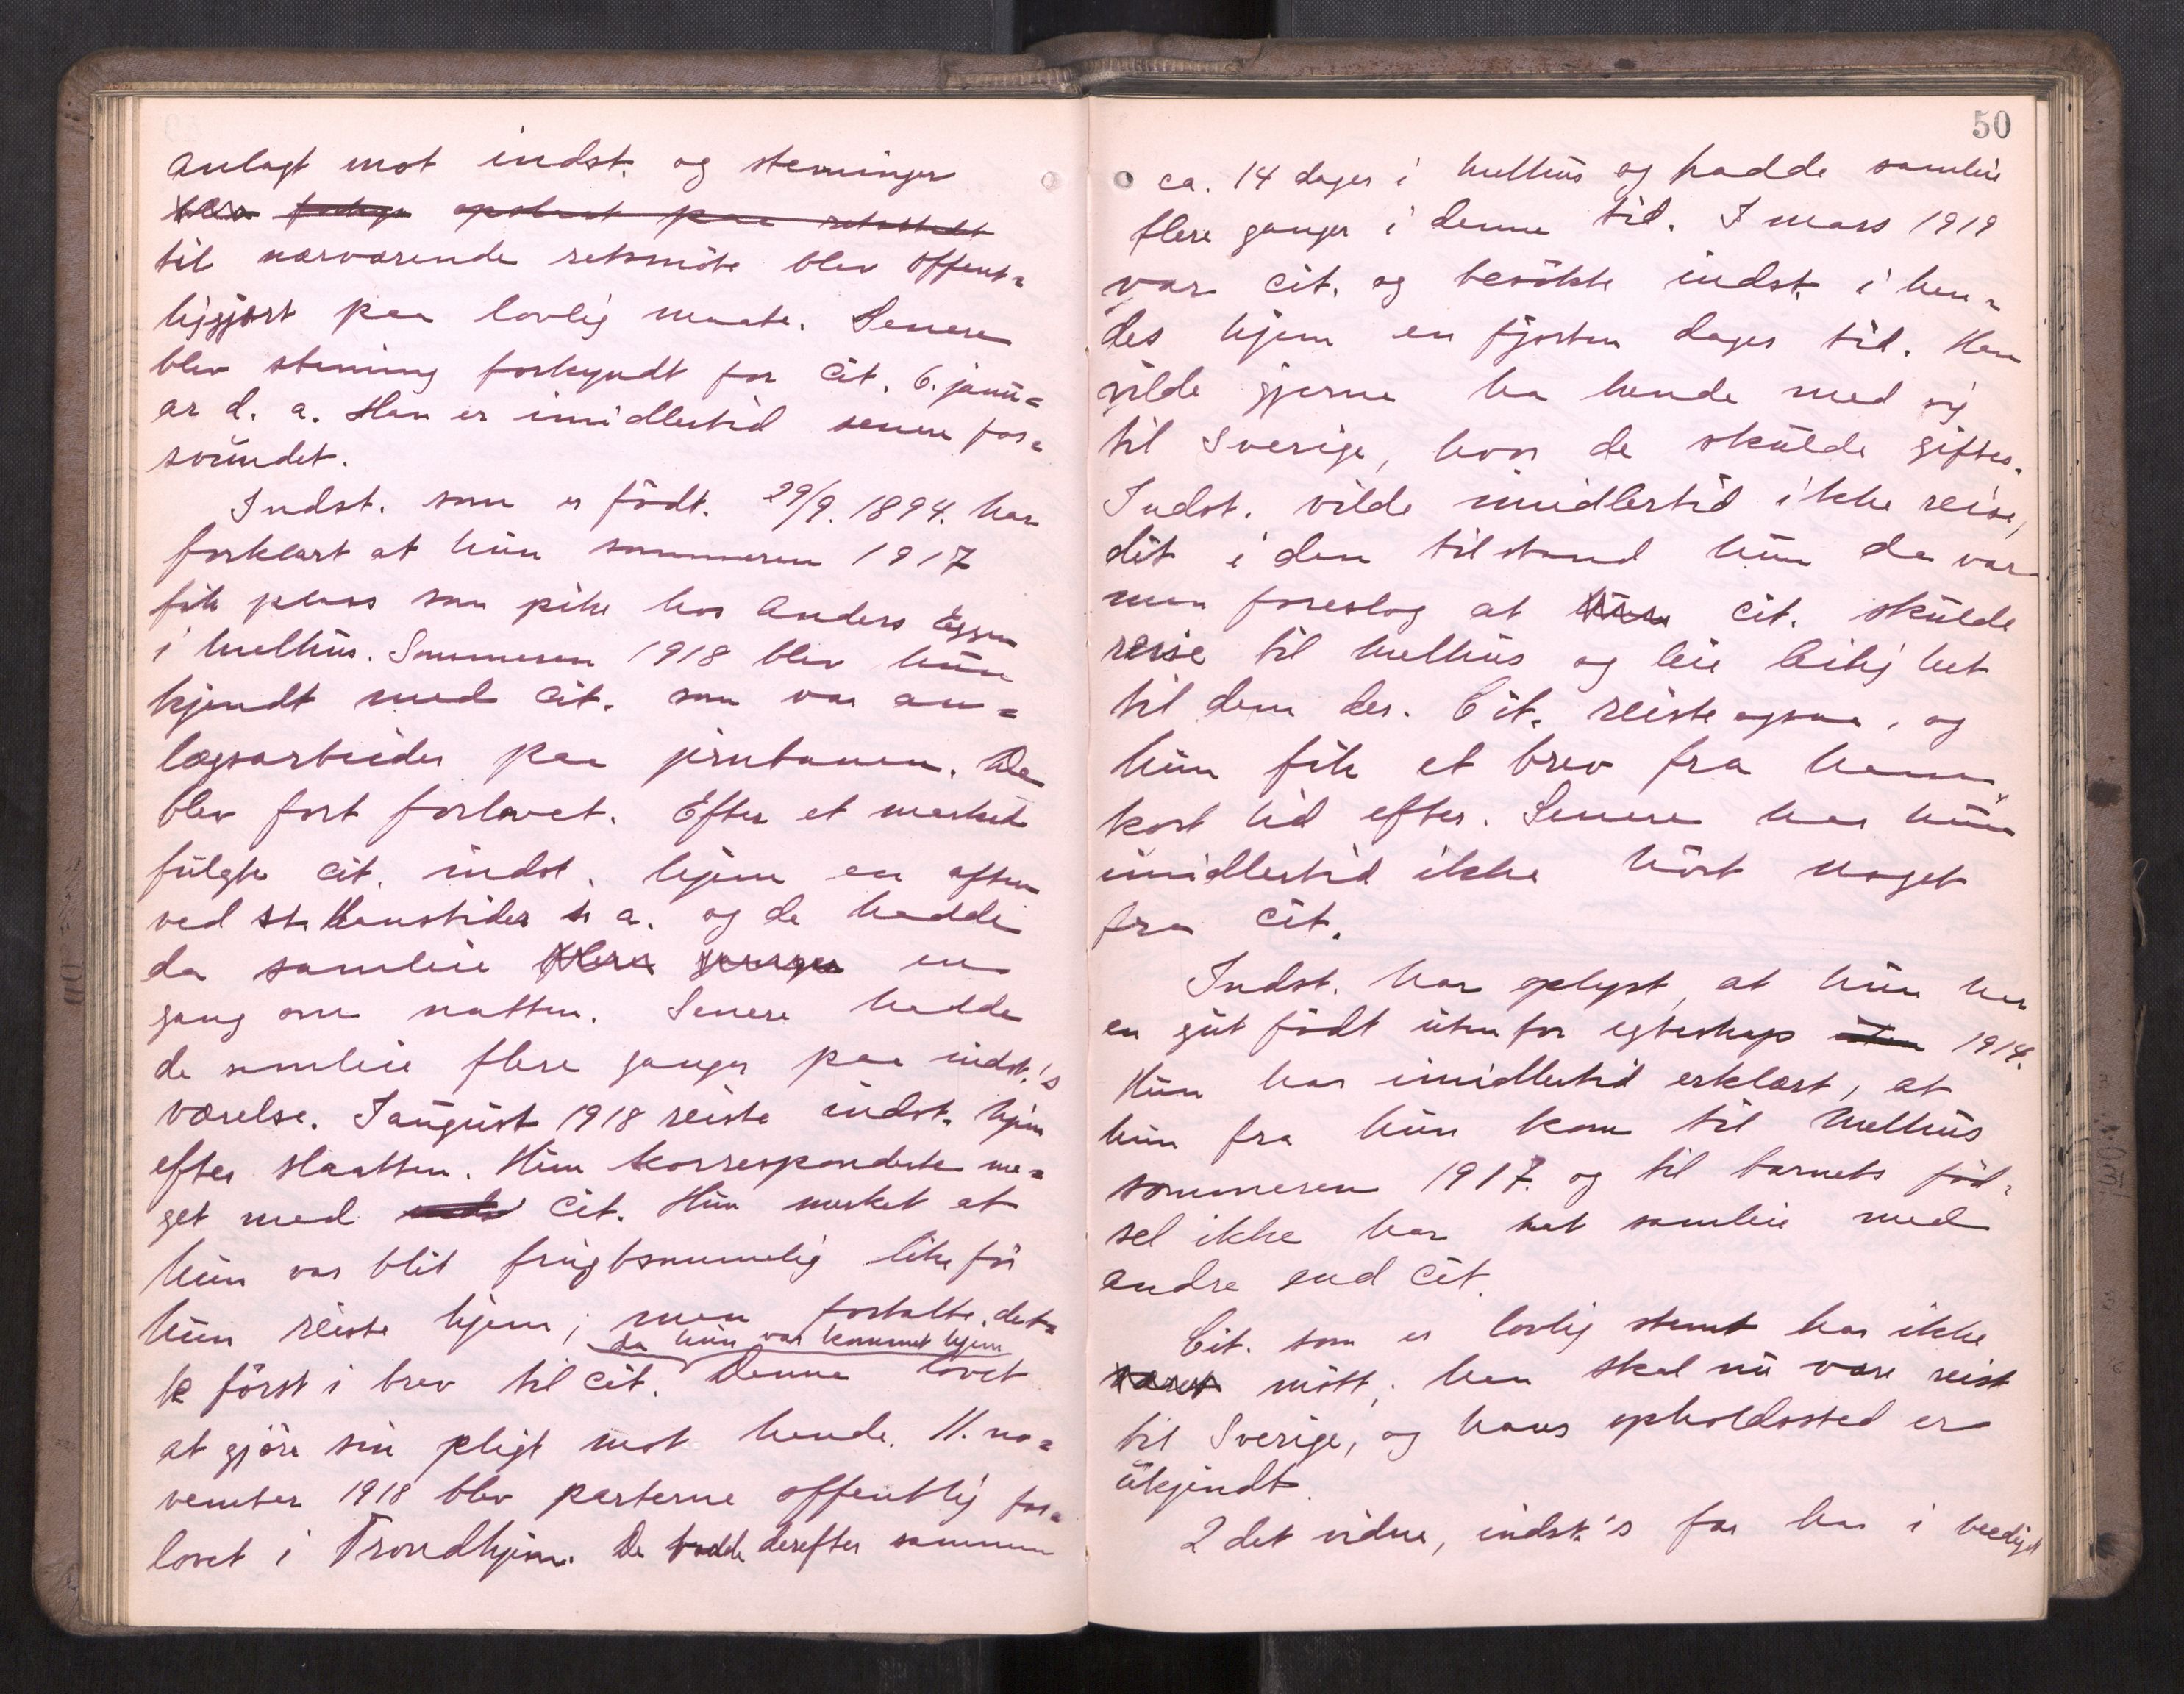 anlagt mot indst. og stevninger
til nærværende retsmöte blev offent=
liggjort paa lovlig maate. Senere
blev stevning forkyndt for cit. 6. janu=
ar d. a. Han er imidlertid senere for=
svundet.
Indst. som er födt. 29/9. 1894. har
forklart at hun sommeren 1917
fik plass som pike hos Anders Eggen
i Melhus. Sommeren 1918 blev hun
kjendt med cit. som var an=
lægsarbeider paa jernbanen. De
blev fort forlovet. Efter et marked
fulgte cit. indst. hjem en aften
ved St. Hanstider s. a. og de hadde
da samleie flere ganger en
gang om natten. Senere hadde
de samleie flere ganger paa indst.'s
værelse. I august 1918 reiste indst. hjem
efter slaatten. Hun korresponderte me=
get med cit. Hun merket at
hun var blit frugtsommelig like før
hun reiste hjem; men fortalte det
da hun var kommet hjem
först i brev til cit. Denne lovet
at gjöre sin pligt mot hende. 11. no=
vember 1918 blev parterne offentlig for=
lovet i Trondhjem. De bodde derefter sammen
50
ca. 14 dager i Melhus og hadde samleie
flere ganger i denne tid. I mars 1919
var cit. og besökte indst. i hen=
des hjem en fjorten dages tid. Han
vilde gjerne ha hende med sig
til Sverige, hvor de skulde giftes.
Indst. vilde imidlertid ikke reise
dit i den tilstand hun da var
men foreslog at cit. skulde
reise til Melhus og leie leilighet
til dem der. Cit. reiste ogsaa, og
hun fik et brev fra ham
kort tid efter. Senere har hun
imidlertid ikke hört noget
fra cit.
Indst. har oplyst, at hun har
en gut födt utenfor egteskap 1914.
Hun har imidlertid erklært, at
hun fra hun kom til Melhus
sommeren 1917. og til barnets föd=
sel ikke har hat samleie med
andre end cit.
Cit. som er lovlig stevnt har ikke
været mött; han skal nu være reist
til Sverige, og hans opholdssted er
ukjendt.
2 det vidne, indst.'s far har i beediget